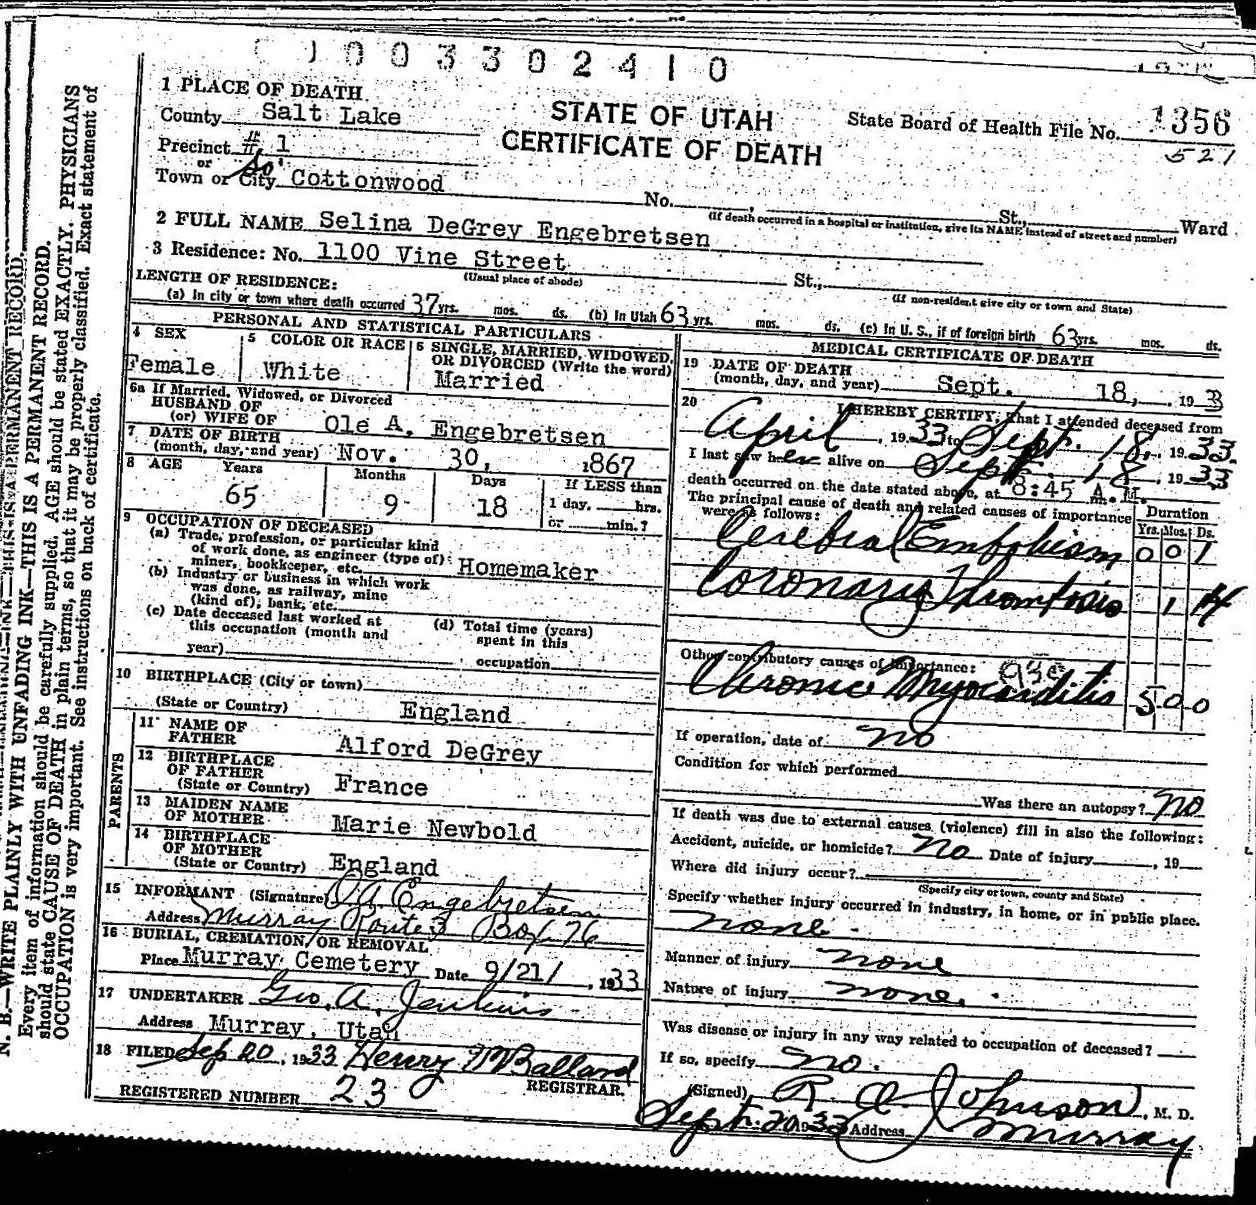 0 0 3 3 0 2 4 1 0
1 PLACE OF DEATH
County Salt Lake
STATE OF UTAH
CERTIFICATE OF DEATH
State Board of Health File No. 1356
527
Precinct # 1
or
Town or City So Cottonwood
No. St., Ward
(If death occurred in a hospital or institution, give its NAME instead of street and number)
2 FULL NAME Selina DeGrey Engebretsen
3 Residence: No. 1100 Vine Street St.,
(Usual place of abode) (If non-resident give city or town and State)
LENGTH OF RESIDENCE:
(a) In city or town where death occurred 37 yrs. mos. ds. (b) In Utah 63 yrs. mos. ds. (c) In U. S., if of foreign birth 63 yrs. mos. ds.
PERSONAL AND STATISTICAL PARTICULARS
4 SEX
Female
5 COLOR OR RACE
White
6 SINGLE, MARRIED, WIDOWED,
OR DIVORCED (Write the word)
Married
6a If Married, Widowed, or Divorced
HUSBAND OF
(or) WIFE OF Ole A. Engebretsen
7 DATE OF BIRTH
(month, day, and year) Nov. 30, 1867
8 AGE Years Months Days If LESS than
65 9 18 1 day, hrs.
or min.?
9 OCCUPATION OF DECEASED
(a) Trade, profession, or particular kind
of work done, as engineer (type of);
miner, bookkeeper, etc. Homemaker
(b) Industry or business in which work
was done, as railway, mine
(kind of); bank, etc.
(c) Date deceased last worked at
this occupation (month and
year)
(d) Total time (years)
spent in this
occupation
10 BIRTHPLACE (City or town)
(State or Country) England
PARENTS
11 NAME OF
FATHER Alford DeGrey
12 BIRTHPLACE
OF FATHER
(State or Country) France
13 MAIDEN NAME
OF MOTHER Marie Newbold
14 BIRTHPLACE
OF MOTHER
(State or Country) England
15 INFORMANT (Signature) O. A. Engebretsen
Address Murray Route 3 Box 76
16 BURIAL, CREMATION, OR REMOVAL
Place Murray Cemetery Date 9/21/, 1933
17 UNDERTAKER Geo. A. Jenkins
Address Murray, Utah
18 FILED Sep 20, 1933 Henry M Ballard
REGISTRAR.
REGISTERED NUMBER 23
MEDICAL CERTIFICATE OF DEATH
19 DATE OF DEATH
(month, day, and year) Sept. 18, 193 3
20 I HEREBY CERTIFY, that I attended deceased from
April, 1933 to Sept. 18, 1933.
I last saw her alive on Sept. 18, 1933
death occurred on the date stated above, at 8:45 A.M.
The principal cause of death and related causes of importance
were as follows:
Duration
Yrs. Mos. Ds.
Cerebral Embolism 0 0 1
Coronary Thrombosis 1 14
Other contributory causes of importance:
Chronic Myocarditis 5 0 0
If operation, date of no
Condition for which performed
Was there an autopsy? no
If death was due to external causes (violence) fill in also the following:
Accident, suicide, or homicide? no Date of injury, 19
Where did injury occur?
(Specify city or town, county and State)
Specify whether injury occurred in industry, in home, or in public place.
none.
Manner of injury none
Nature of injury none.
Was disease or injury in any way related to occupation of deceased?
If so, specify no.
(Signed) R. A. Johnson, M. D.
Sept. 20 1933 Address Murray
N. B.—WRITE PLAINLY WITH UNFADING INK—THIS IS A PERMANENT RECORD.
Every item of information should be carefully supplied. AGE should be stated EXACTLY. PHYSICIANS
should state CAUSE OF DEATH in plain terms, so that it may be properly classified. Exact statement of
OCCUPATION is very important. See instructions on back of certificate.